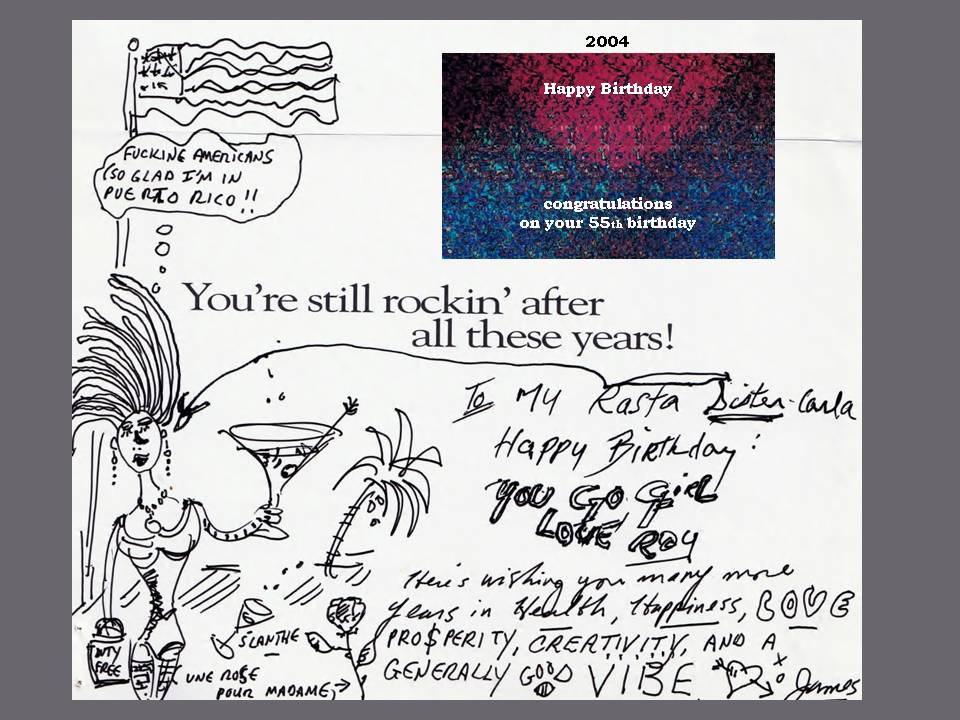 2004
Happy Birthday
congratulations
on your 55th birthday
FUCKING AMERICANS
(SO GLAD I'M IN
PUERTO RICO!!
You're still rockin' after
all these years!
To My Rasta Sister-Carla
Happy Birthday!
YOU GO GIRL
LOVE ROY
Here's wishing you many more
years in Health, Happiness, LOVE
PRO$PERITY, CREATIVITY, AND A
GENERALLY GOOD VIBE
James
SLANTHE
UNE ROSE
POUR MADAME
DUTY
FREE